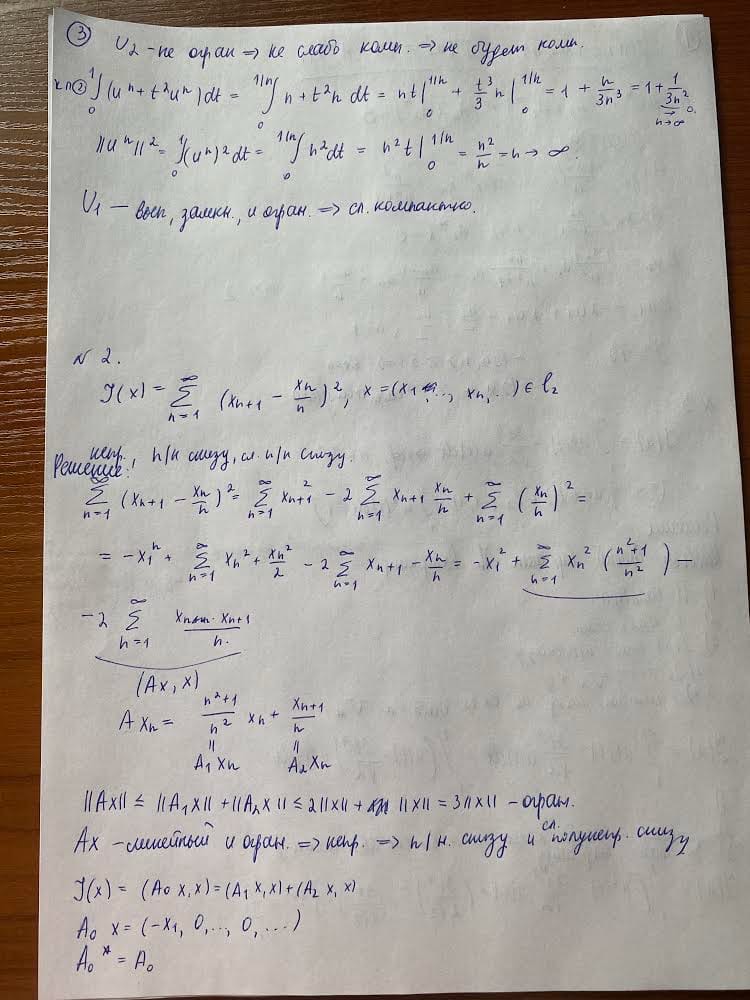 ③
U₂ - не огран ⇒ не слабо комп. ⇒ не будет комп.
② ∫₀¹ (uⁿ + t²uⁿ) dt = ∫₀^{1/n} n + t²n dt = nt|₀^{1/n} + t³/3 n|₀^{1/n} = 1 + n/3n³ = 1 + 1/3n² → 0, n→∞
||uⁿ||² = ∫₀¹ (uⁿ)² dt = ∫₀^{1/n} n² dt = n²t|₀^{1/n} = n²/n = n → ∞.
U₁ — вып, замкн., и огран. ⇒ сл. компактно.
N 2.
J(x) = ∑_{n=1}^∞ (x_{n+1} - x_n/n)², x = (x₁, .., x_n, ..) ∈ l₂
непр., п/н снизу, сл. п/н снизу.
Решение:
∑_{n=1}^∞ (x_{n+1} - x_n/n)² = ∑_{n=1}^∞ x_{n+1}² - 2 ∑_{n=1}^∞ x_{n+1} x_n/n + ∑_{n=1}^∞ (x_n/n)² =
= -x₁² + ∑_{n=1}^∞ x_n² + x_n²/2 - 2 ∑_{n=1}^∞ x_{n+1} - x_n/n = -x₁² + ∑_{n=1}^∞ x_n² (n²+1/n²) —
- 2 ∑_{n=1}^∞ x_n · x_{n+1}/n.
(Ax, x)
A x_n = n²+1/n² x_n + x_{n+1}/n
= =
A₁x_n A₂x_n
||Ax|| ≤ ||A₁x|| + ||A₂x|| ≤ 2||x|| + ||x|| = 3||x|| - огран.
Ax - линейный и огран. ⇒ непр. ⇒ п/н. снизу и сл. полунепр. снизу
J(x) = (A₀x, x) = (A₁x, x) + (A₂x, x)
A₀ x = (-x₁, 0, .., 0, ...)
A₀* = A₀